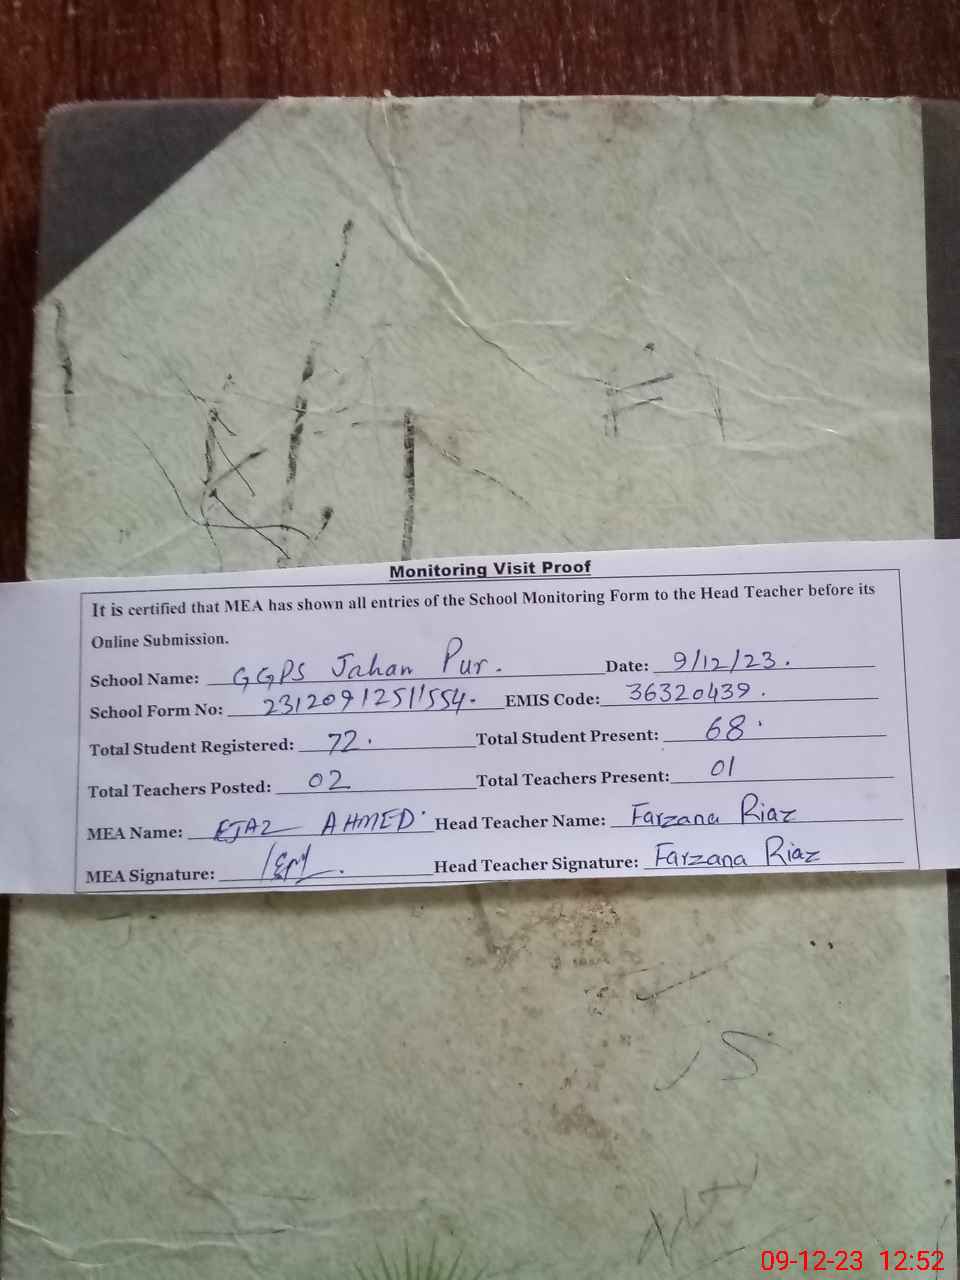 Monitoring Visit Proof
It is certified that MEA has shown all entries of the School Monitoring Form to the Head Teacher before its
Online Submission.
School Name: GGPS Jahan Pur. Date: 9/12/23.
School Form No: 23120912511554. EMIS Code: 36320439.
Total Student Registered: 72. Total Student Present: 68.
Total Teachers Posted: 02 Total Teachers Present: 01
MEA Name: EJAZ AHMED Head Teacher Name: Farzana Riaz
MEA Signature: Head Teacher Signature: Farzana Riaz
09-12-23 12:52